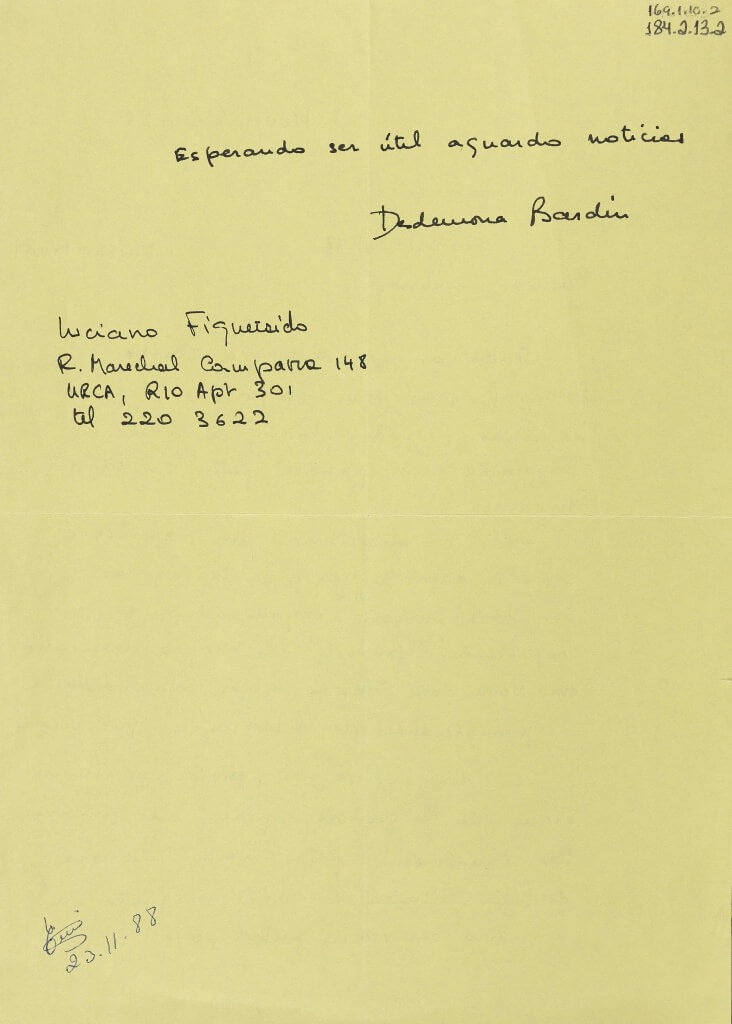 169.1.10.2
184.2.13.2
Esperando ser útil aguardo noticias
Desdemona Bardin
Luciano Figueiredo
R. Marechal 148
URCA, RIO Apt 301
tel 220 3622
23.11.88